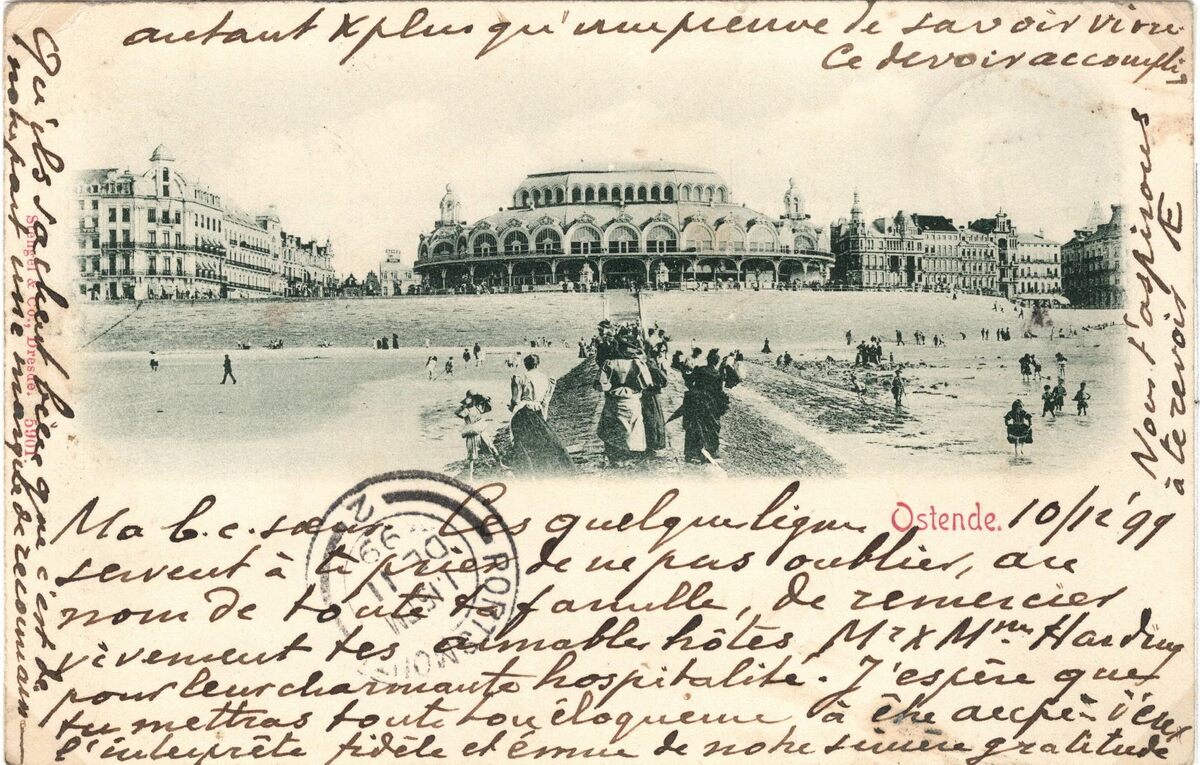 Ma b.c. sœur. Ces quelques lignes
Ostende. 10/12 '99
servent à te prier de ne pas oublier, au
nom de toute ta famille, de remercier
vivement tes aimables hôtes Mr & Mme Harding
pour leur charmante hospitalité. J'espère que
tu mettras toute ton éloquence, à être auprès d'eux
l'interprète fidèle et émue de notre sincère gratitude
Qu'ils sachent bien que c'est de
notre part une marque de
autant & plus qu'une preuve de savoir vivre
Ce devoir accompli
Nous t'aspirons
à te revoir Æ
Stengel & Co., Dresde. 5901
PORTSMOUTH
DE 11
99
2